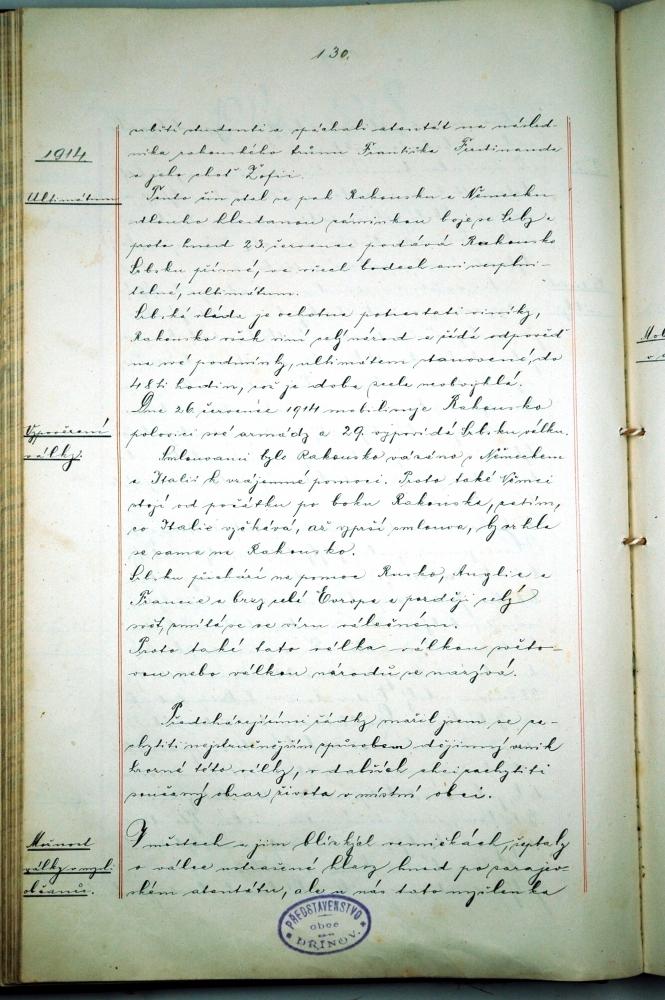 130.
srbští studenti a spáchali atentát na násled-
níka rakouského trůnu Františka Ferdinanda
1914
a jeho choť Žofii.
Ultimátum
Tento čin stal se pak Rakousku a Německu
dlouho hledanou záminkou boje se Srby a
proto hned 23. července podává Rakousko
Srbsku přísné, ve všech bodech ani nesplni-
telné, ultimátum.
Srbská vláda je ochotna potrestati viníky,
Rakousko však viní celý národ a žádá odpověď
na své podmínky, ultimátem stanovené, do
48ti hodin, což je doba zcela neobvyklá.
Dne 26. července 1914 mobilisuje Rakousko
Vypovězení
polovici své armády a 29. vypovídá Srbsku válku.
války.
Smlouvami bylo Rakousko vázáno s Německem
a Italií k vzájemné pomoci. Proto také Němci
stojí od počátku po boku Rakouska, zatím,
co Italie vyčkává, až vyprší smlouva, by vrhla
se sama na Rakousko.
Srbsku přichází na pomoc Rusko, Anglie a
Francie a brzy celá Evropa a později celý
svět, zmítá se ve víru válečném.
Proto také tato válka válkou světo-
vou nebo válkou národů se nazývá.
Předcházejícími řádky snažil jsem se za-
chytiti nejstručnějším způsobem dějinný vznik
hrozné této války, v dalších chci zachytiti
současný obraz života v místní obci.
Možnost
války v mysli
občanů.
V městech a jim blízkých vesničkách, šeptaly
o válce ustrašené hlasy hned po sarajev-
ském atentátu, ale u nás tato myšlenka
PŘEDSTAVENSTVO
obce
DŘÍNOV.